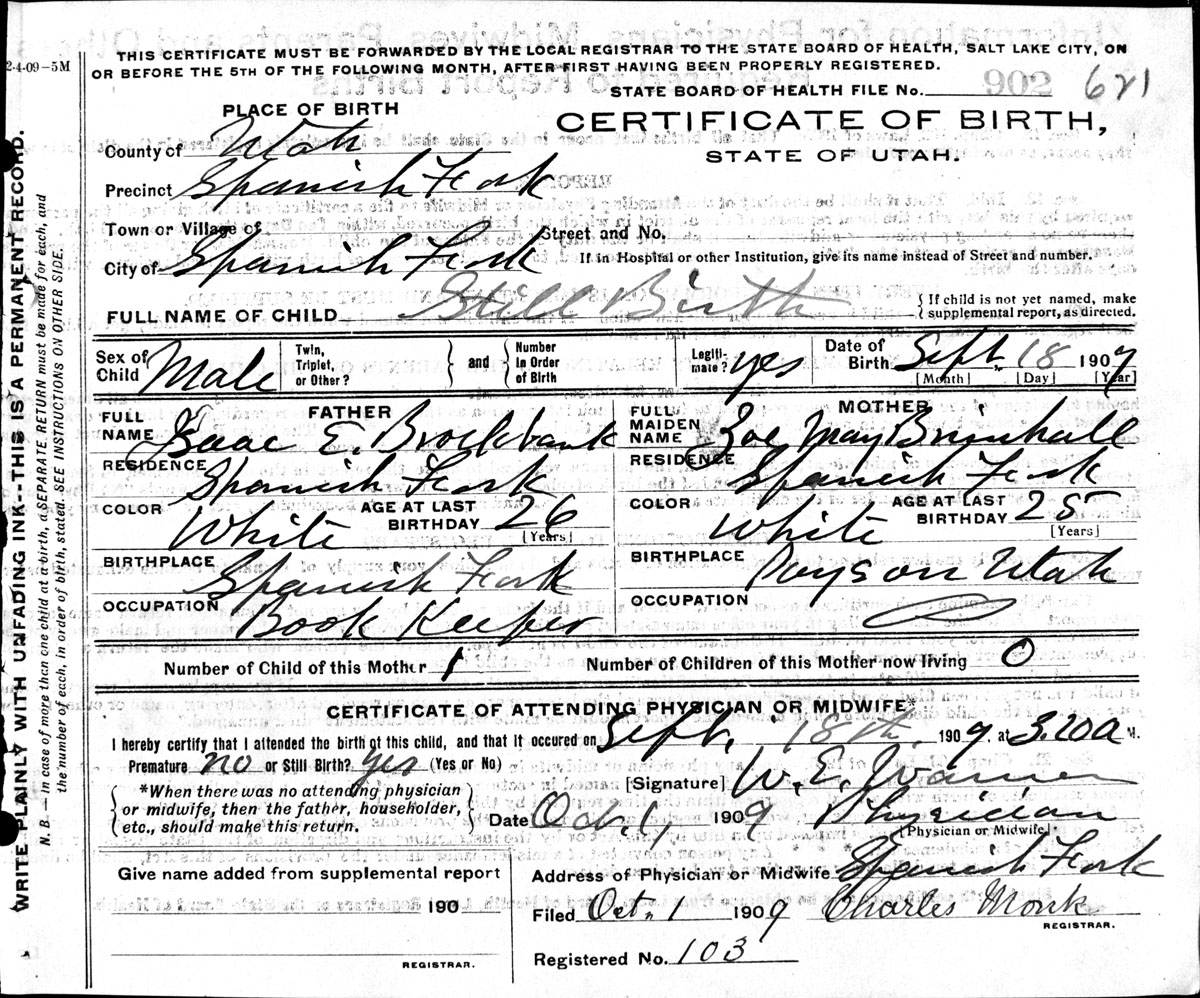 THIS CERTIFICATE MUST BE FORWARDED BY THE LOCAL REGISTRAR TO THE STATE BOARD OF HEALTH, SALT LAKE CITY, ON
2-4-09—5M
OR BEFORE THE 5TH OF THE FOLLOWING MONTH, AFTER FIRST HAVING BEEN PROPERLY REGISTERED.
STATE BOARD OF HEALTH FILE No. 902 621
PLACE OF BIRTH
CERTIFICATE OF BIRTH,
County of Utah
STATE OF UTAH.
Precinct Spanish Fork
Town or Village of Street and No.
City of Spanish Fork If in Hospital or other Institution, give its name instead of Street and number.
FULL NAME OF CHILD Still Birth { If child is not yet named, make supplemental report, as directed.
Sex of Child Male Twin, Triplet, or Other? } and { Number in Order of Birth Legitimate? yes Date of Birth Sept. 18 1909
[Month] [Day] [Year]
FATHER
FULL NAME Isaac E. Brockbank
RESIDENCE Spanish Fork
COLOR White AGE AT LAST BIRTHDAY 26 [Years]
BIRTHPLACE Spanish Fork
OCCUPATION Book Keeper
MOTHER
FULL MAIDEN NAME Zoe May Brimhall
RESIDENCE Spanish Fork
COLOR White AGE AT LAST BIRTHDAY 25 [Years]
BIRTHPLACE Payson Utah
OCCUPATION
Number of Child of this Mother 1 Number of Children of this Mother now living 0
CERTIFICATE OF ATTENDING PHYSICIAN OR MIDWIFE*
I hereby certify that I attended the birth of this child, and that it occured on Sept. 18th, 1909. at 3.20 a M.
Premature no or Still Birth? yes (Yes or No)
[Signature] W. E. Warner
{ *When there was no attending physician or midwife, then the father, householder, etc., should make this return. }
Date Oct. 1 1909 Physician
[Physician or Midwife]
Give name added from supplemental report
Address of Physician or Midwife Spanish Fork
190
Filed Oct. 1 1909 Charles Monk
REGISTRAR.
REGISTRAR.
Registered No. 103
WRITE PLAINLY WITH UNFADING INK--THIS IS A PERMANENT RECORD.
N. B.—in case of more than one child at a birth, a SEPARATE RETURN must be made for each, and
the number of each, in order of birth, stated. SEE INSTRUCTIONS ON OTHER SIDE.